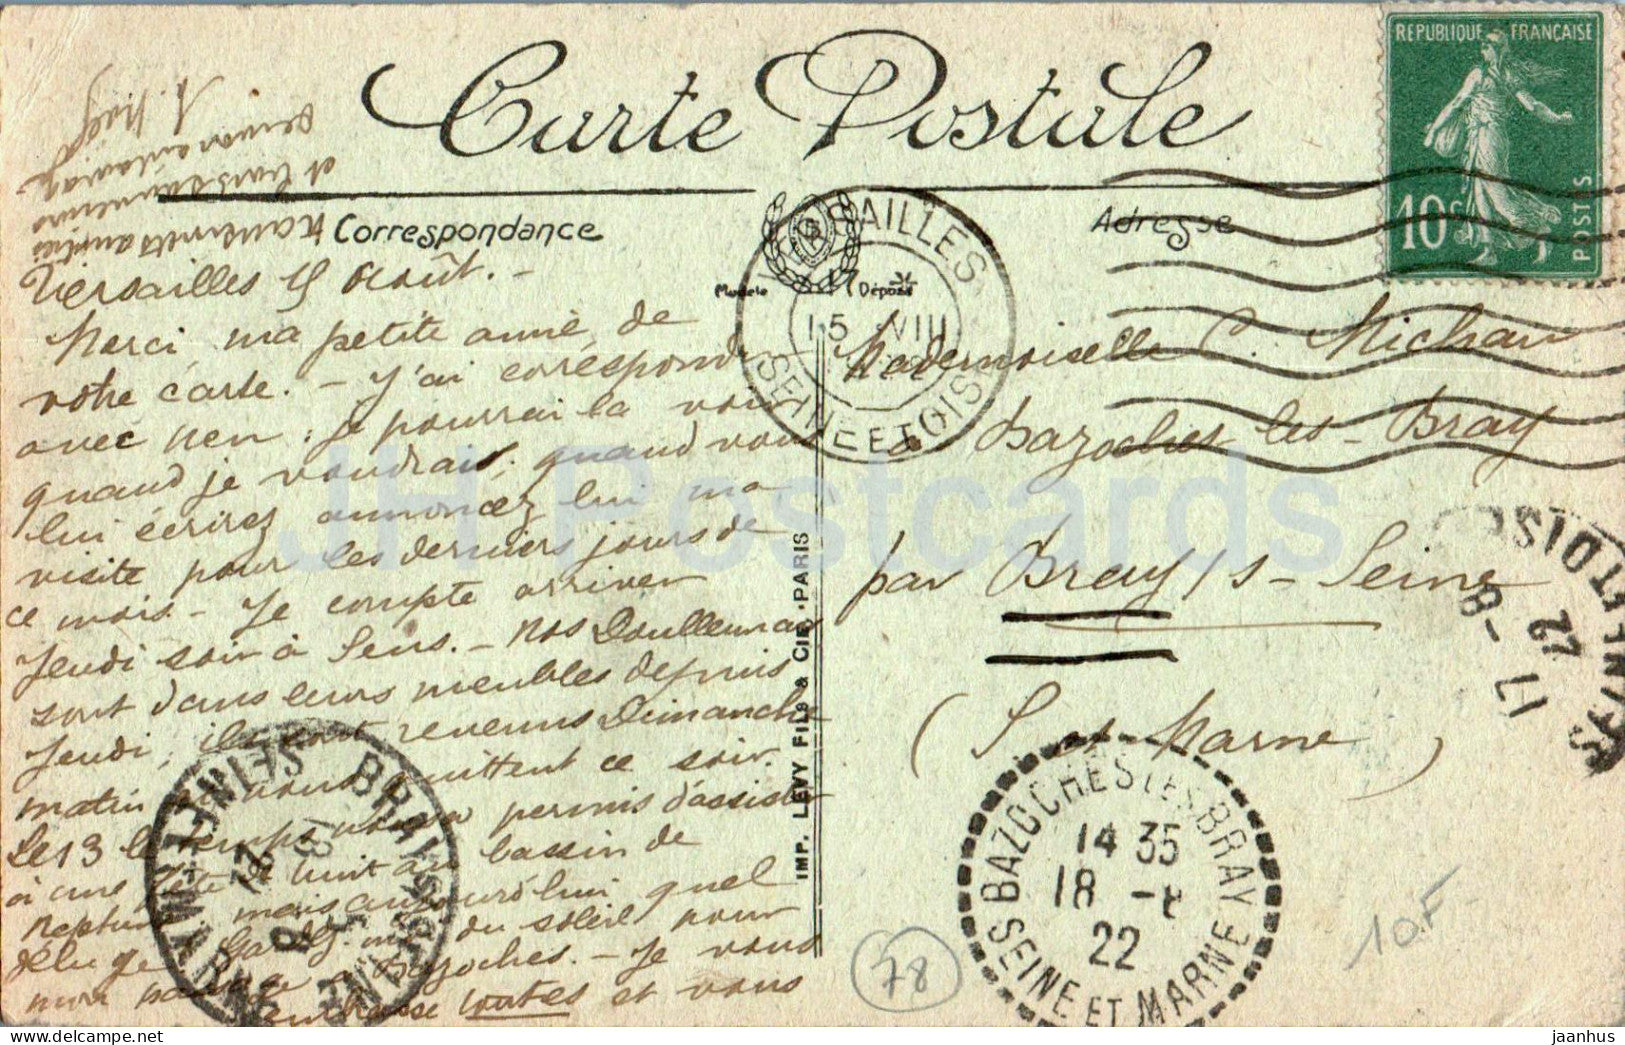 Carte Postale
RÉPUBLIQUE FRANÇAISE
10c
POSTES
Correspondance
Adresse
Modèle Déposé
VERSAILLES
17
15 VIII
SEINE ET OISE
Versailles 15 Août. -
Merci, ma petite amie, de
votre carte. - J'ai correspond
avec Men ; je pourrai la voir
quand je voudrais ; quand vous
lui écrirez annoncez lui ma
visite pour les derniers jours de
ce mois - Je compte arriver
Jeudi soir à Sens. - Nos
sont dans leurs meubles depuis
Jeudi, ils sont revenus Dimanche
matin nous quittent ce soir.
Le 13 le temps nous a permis d'assister
à une fête de nuit au bassin de
Neptune, mais aujourd'hui quel
déluge du soleil pour
mon Bazoches. - Je vous
embrasse toutes et vous
Mademoiselle C. Michau
à Bazoches les - Bray
par Bray s/s - Seine
(S. et Marne)
IMP. LEVY FILS & CIE. PARIS
BRAY S SEINE
SEINE ET M
18
8
22
17 - 8
22
BAZOCHES LES BRAY
14 35
18 - 8
22
SEINE ET MARNE
78
10F
JH Postcards
jaanhus